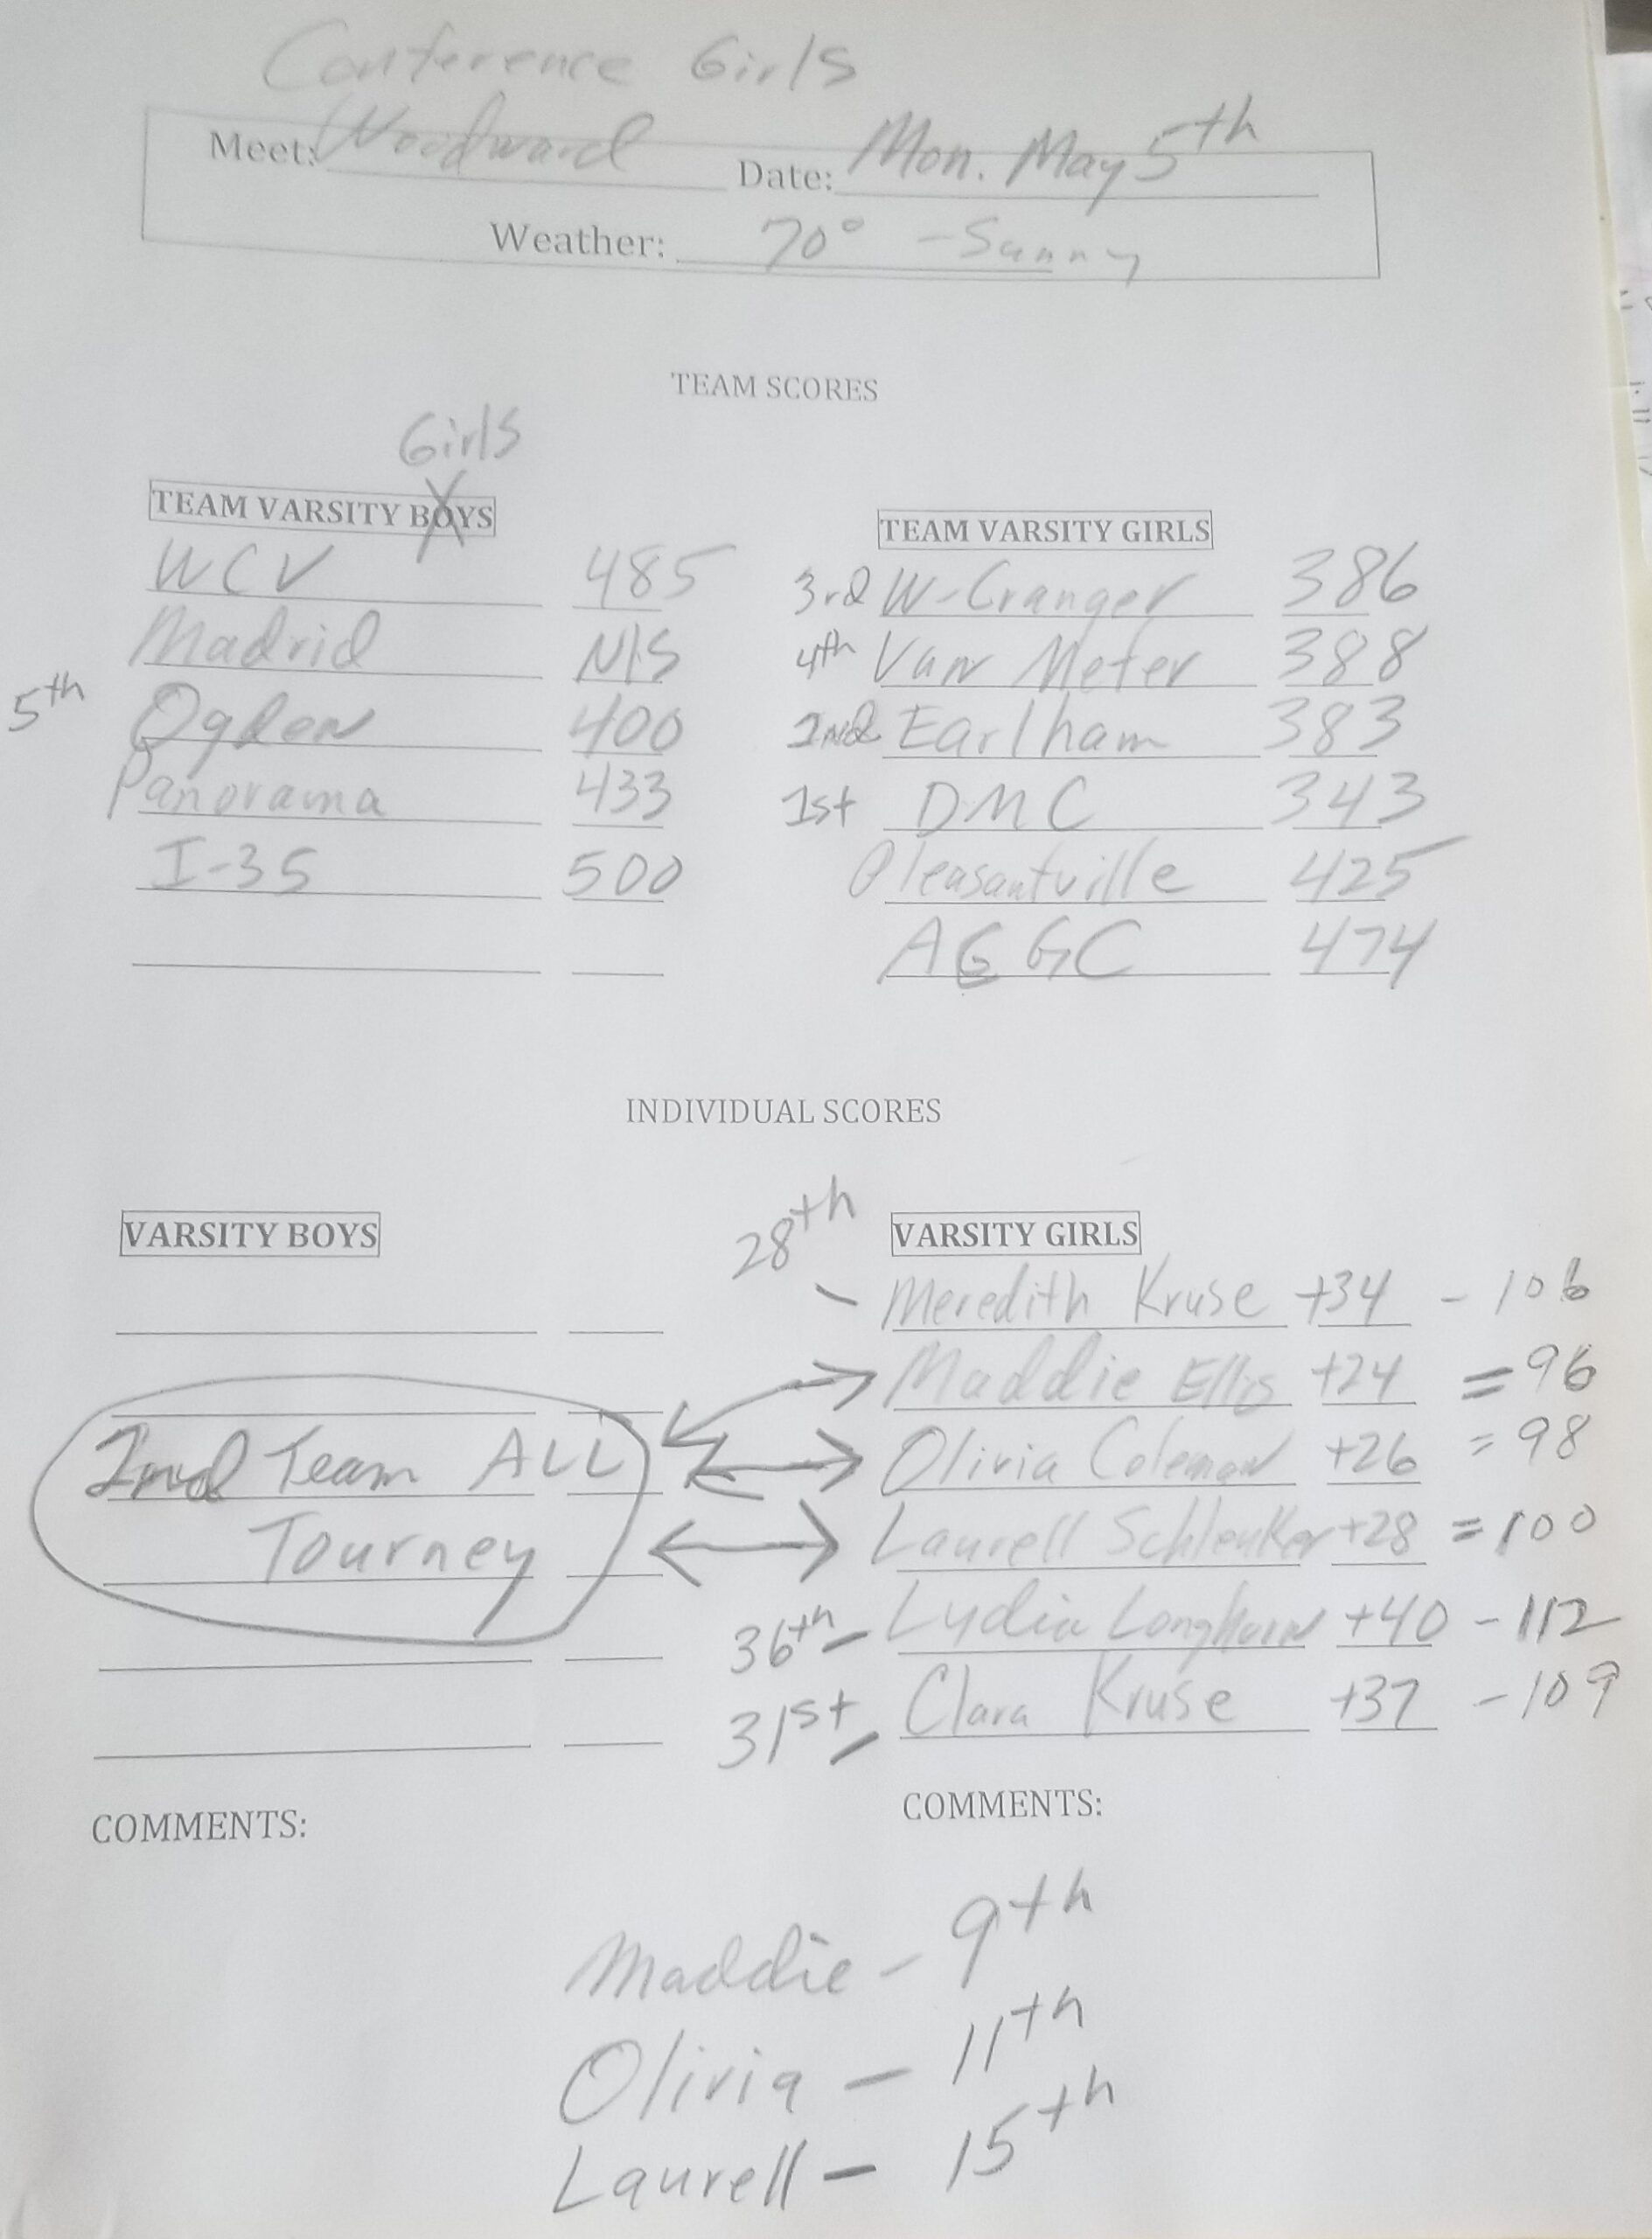 Conference Girls
Meet: Woodward Date: Mon. May 5th
Weather: 70° - Sunny
TEAM SCORES
Girls
TEAM VARSITY BOYS
WCV 485
Madrid N/S
5th Ogden 400
Panorama 433
I-35 500
TEAM VARSITY GIRLS
3rd W-Granger 386
4th Van Meter 388
2nd Earlham 383
1st DMC 343
Pleasantville 425
ACGC 474
INDIVIDUAL SCORES
VARSITY BOYS
2nd Team ALL
Tourney
VARSITY GIRLS
28th - Meredith Kruse +34 - 106
Maddie Ellis +24 = 96
Olivia Coleman +26 = 98
Laurell Schlenker +28 = 100
36th - Lydia Longhorn +40 - 112
31st - Clara Kruse +37 - 109
COMMENTS:
COMMENTS:
Maddie - 9th
Olivia - 11th
Laurell - 15th